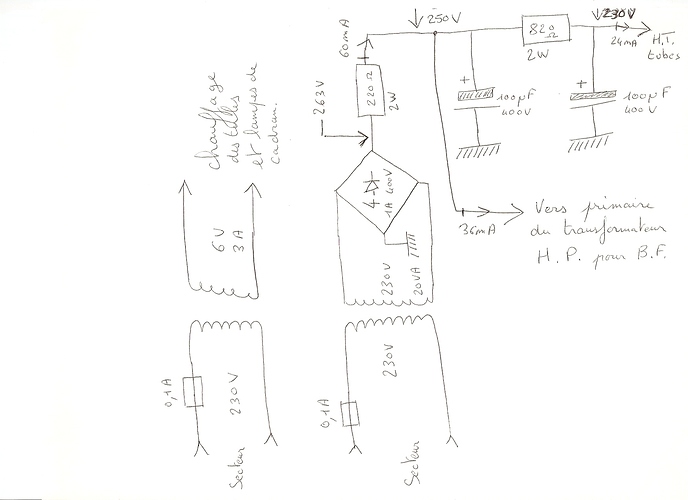 250V
230V
60mA
820
Ω
2W
24mA
H.T.
tubes
+
100µF
400V
+
100µF
400V
220Ω
2W
263V
Chauffage
des tubes
et lampes de
cadran.
4
1A 400V
36mA
Vers primaire
du transformateur
H.P. pour B.F.
6V
3A
230V
20VA
0,1A
230V
Secteur
0,1A
230V
Secteur